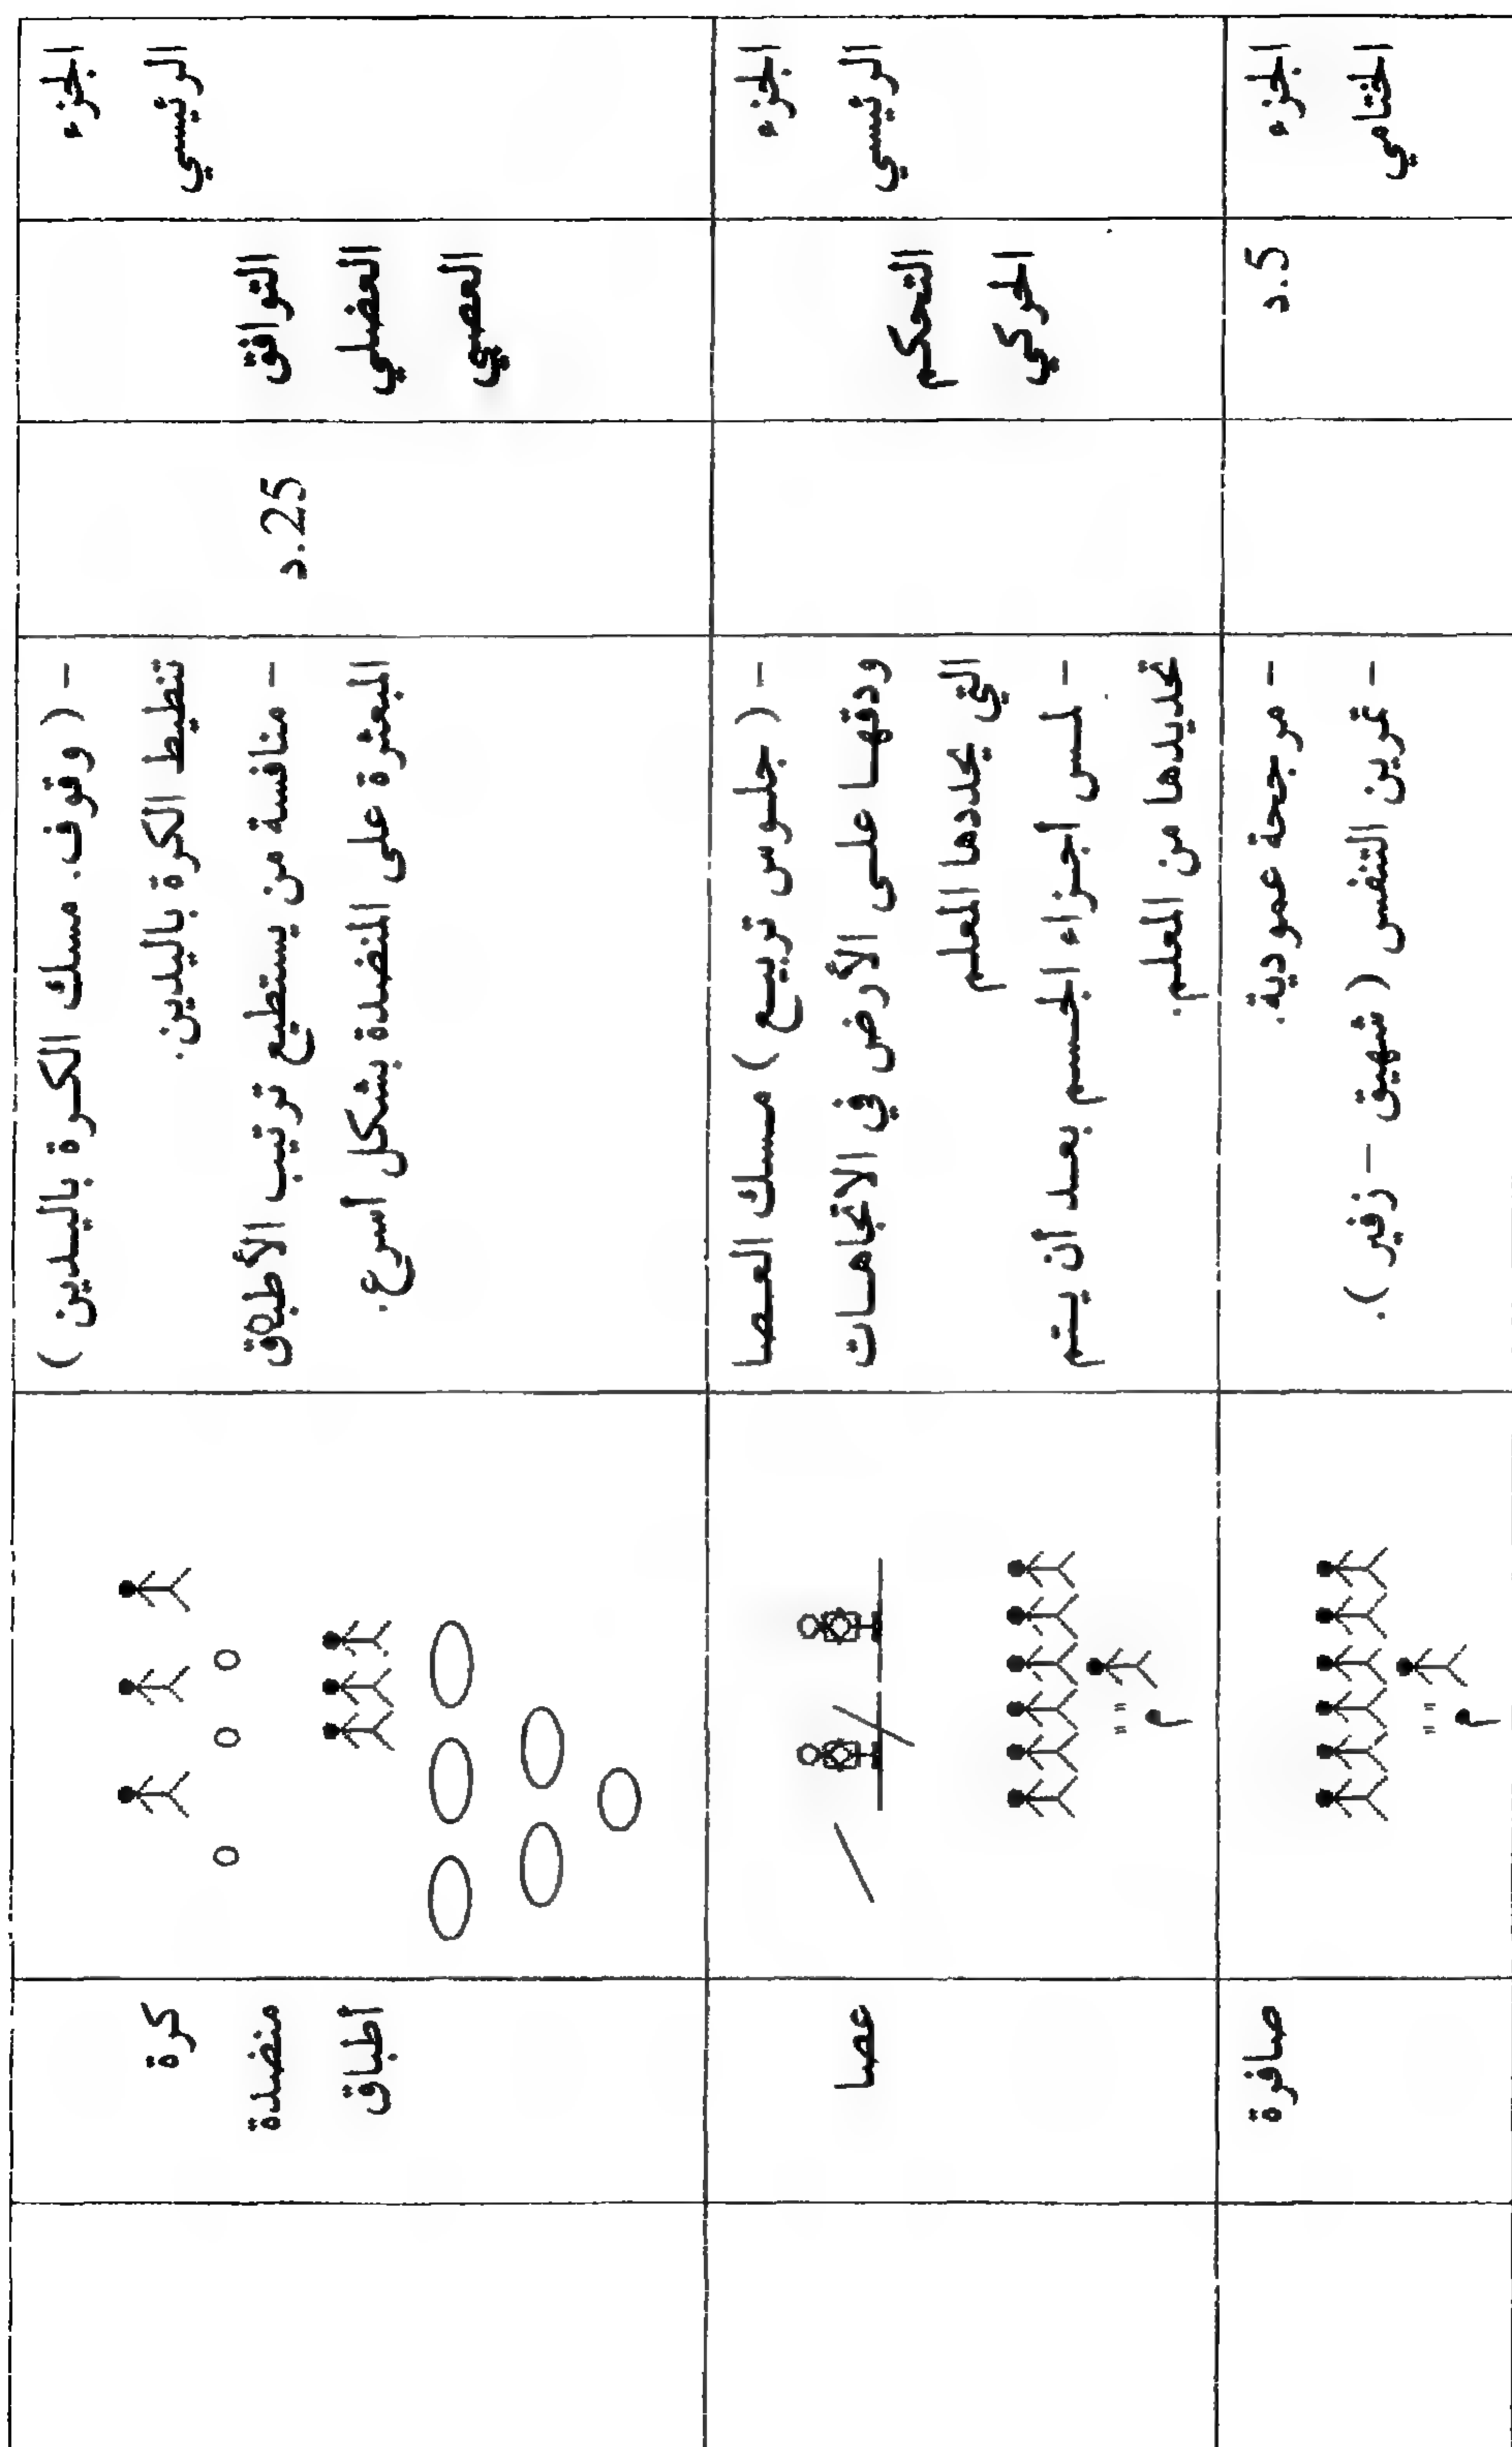 الجزء
الرئيسي
التوافق
العضلي
العصبي
25.د
- (وقوف. مسك الكرة باليدين)
تنطيط الكرة باليدين.
- منافسة من يستطيع ترتيب الأطباق
المبعثرة على المنضدة بشكل أسرع.
كرة
منضدة
أطباق
الجزء
الرئيسي
التحكم
الحركي
- (جلوس تربيع) مسك العصا
ودقها على الأرض في الاتجاهات
التي يحددها المعلم
- لمس أجزاء الجسم بعد أن يتم
تحديدها من المعلم.
" "
م
عصا
الجزء
الختامي
5.د
- مرجحة عمودية.
- تمرين التنفس (شهيق - زفير).
" "
م
صافرة